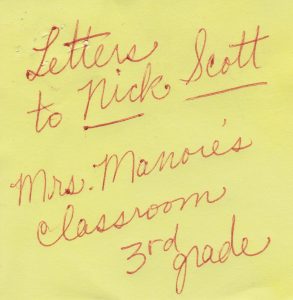 Letters
to Nick Scott
Mrs. Manoie's
classroom
3rd grade